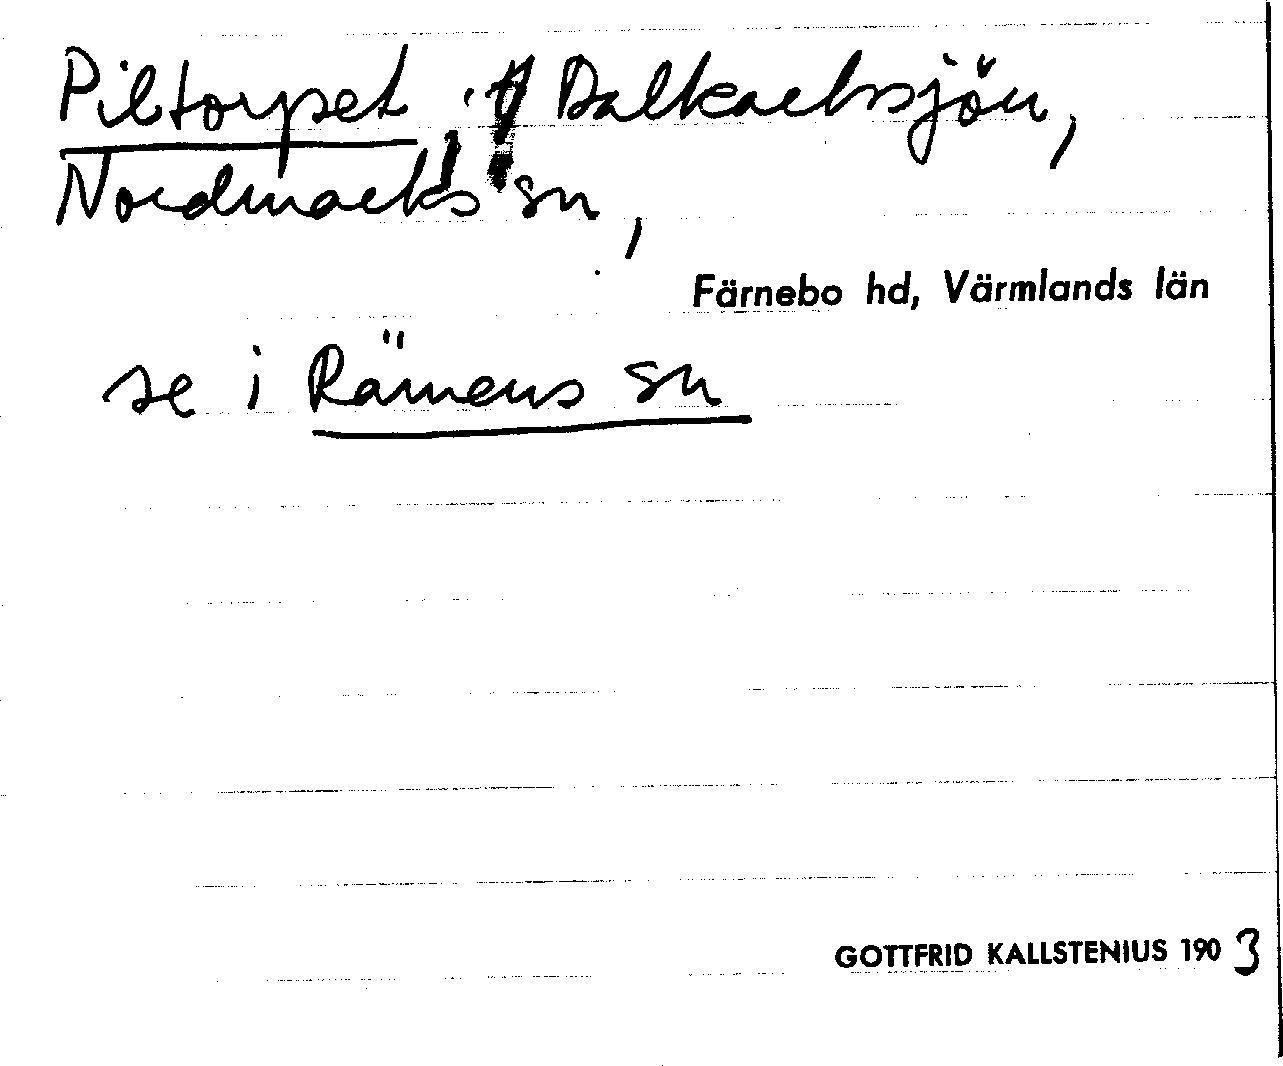 Piltorpet, Dalkarlssjön,
Nordmarks sn,
Färnebo hd, Värmlands län
se i Rämens sn
GOTTFRID KALLSTENIUS 1903